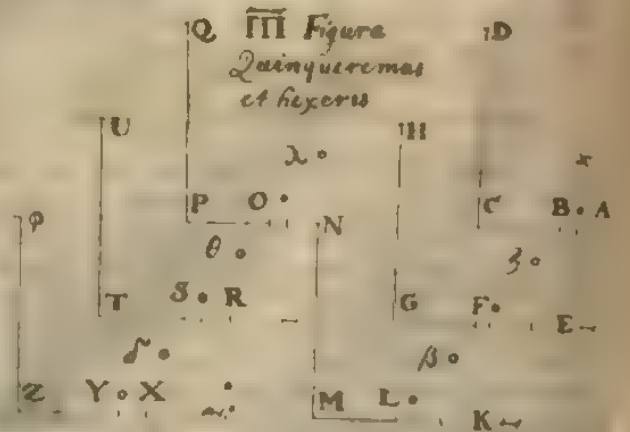 Q III Figura D
Quinqueremus
et hexeris
U H
λ x
P O N C B A
φ
θ ξ
T S R G F E
δ β
Z Y X M L K